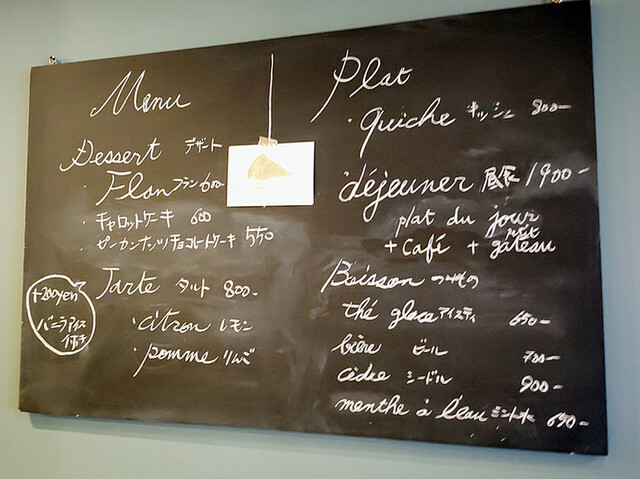 Menu
Dessert デザート
・Flan フラン 600-
・キャロットケーキ 600
・ピーカンナッツチョコレートケーキ 550
Tarte タルト 800-
・citron レモン
・pomme りんご
+200yen
バニラアイス
Plat
・quiche キッシュ 800-
déjeuner 昼食 1900-
plat du jour
+ Café + p'tit gâteau
Boisson のみもの
thé glace アイスティ 650-
bière ビール 700-
cidre シードル 900-
menthe à l'eau ミント水 650-